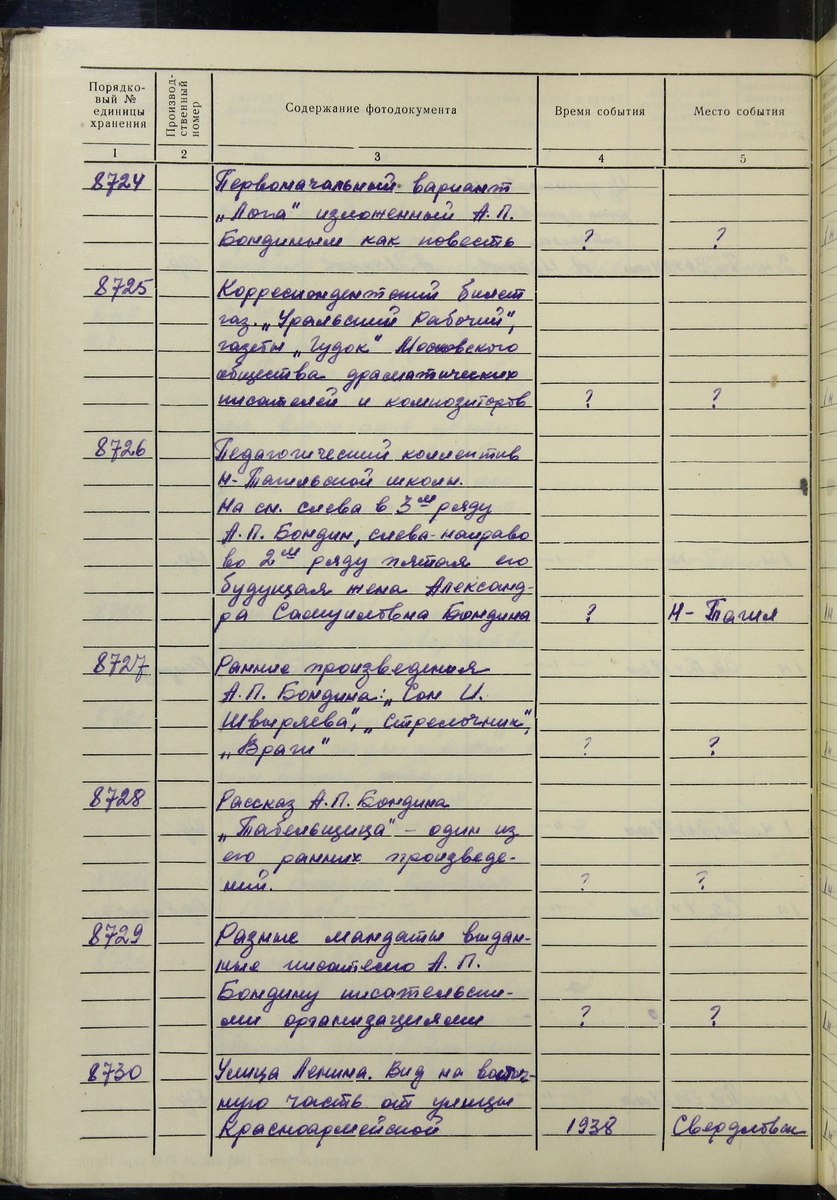 Порядко-
вый №
единицы
хранения
Производ-
ственный
номер
Содержание фотодокумента
Время события
Место события
1 2 3 4 5
8724 Первоначальный вариант
„Лога" изложенный А.П.
Бондиным как повесть ? ?
8725 Корреспондентский билет
газ. „Уральский Рабочий",
газеты „Гудок" Московского
общества драматических
писателей и композиторов ? ?
8726 Педагогический коллектив
Н-Тагильской школы.
На сн. слева в 3м ряду
А.П. Бондин, слева-направо
во 2м ряду пятая его
будущая жена Александ-
ра Самуиловна Бондина ? Н-Тагил
8727 Ранние произведения
А.П. Бондина: „Сон И.
Швыряева", „Стрелочник",
„Враги" ? ?
8728 Рассказ А.П. Бондина
„Табельщица" – один из
его ранних произведе-
ний. ? ?
8729 Разные мандаты выдан-
ные писателю А.П.
Бондину писательски-
ми организациями ? ?
8730 Улица Ленина. Вид на восточ-
ную часть от улицы
Красноармейской 1938 Свердловск